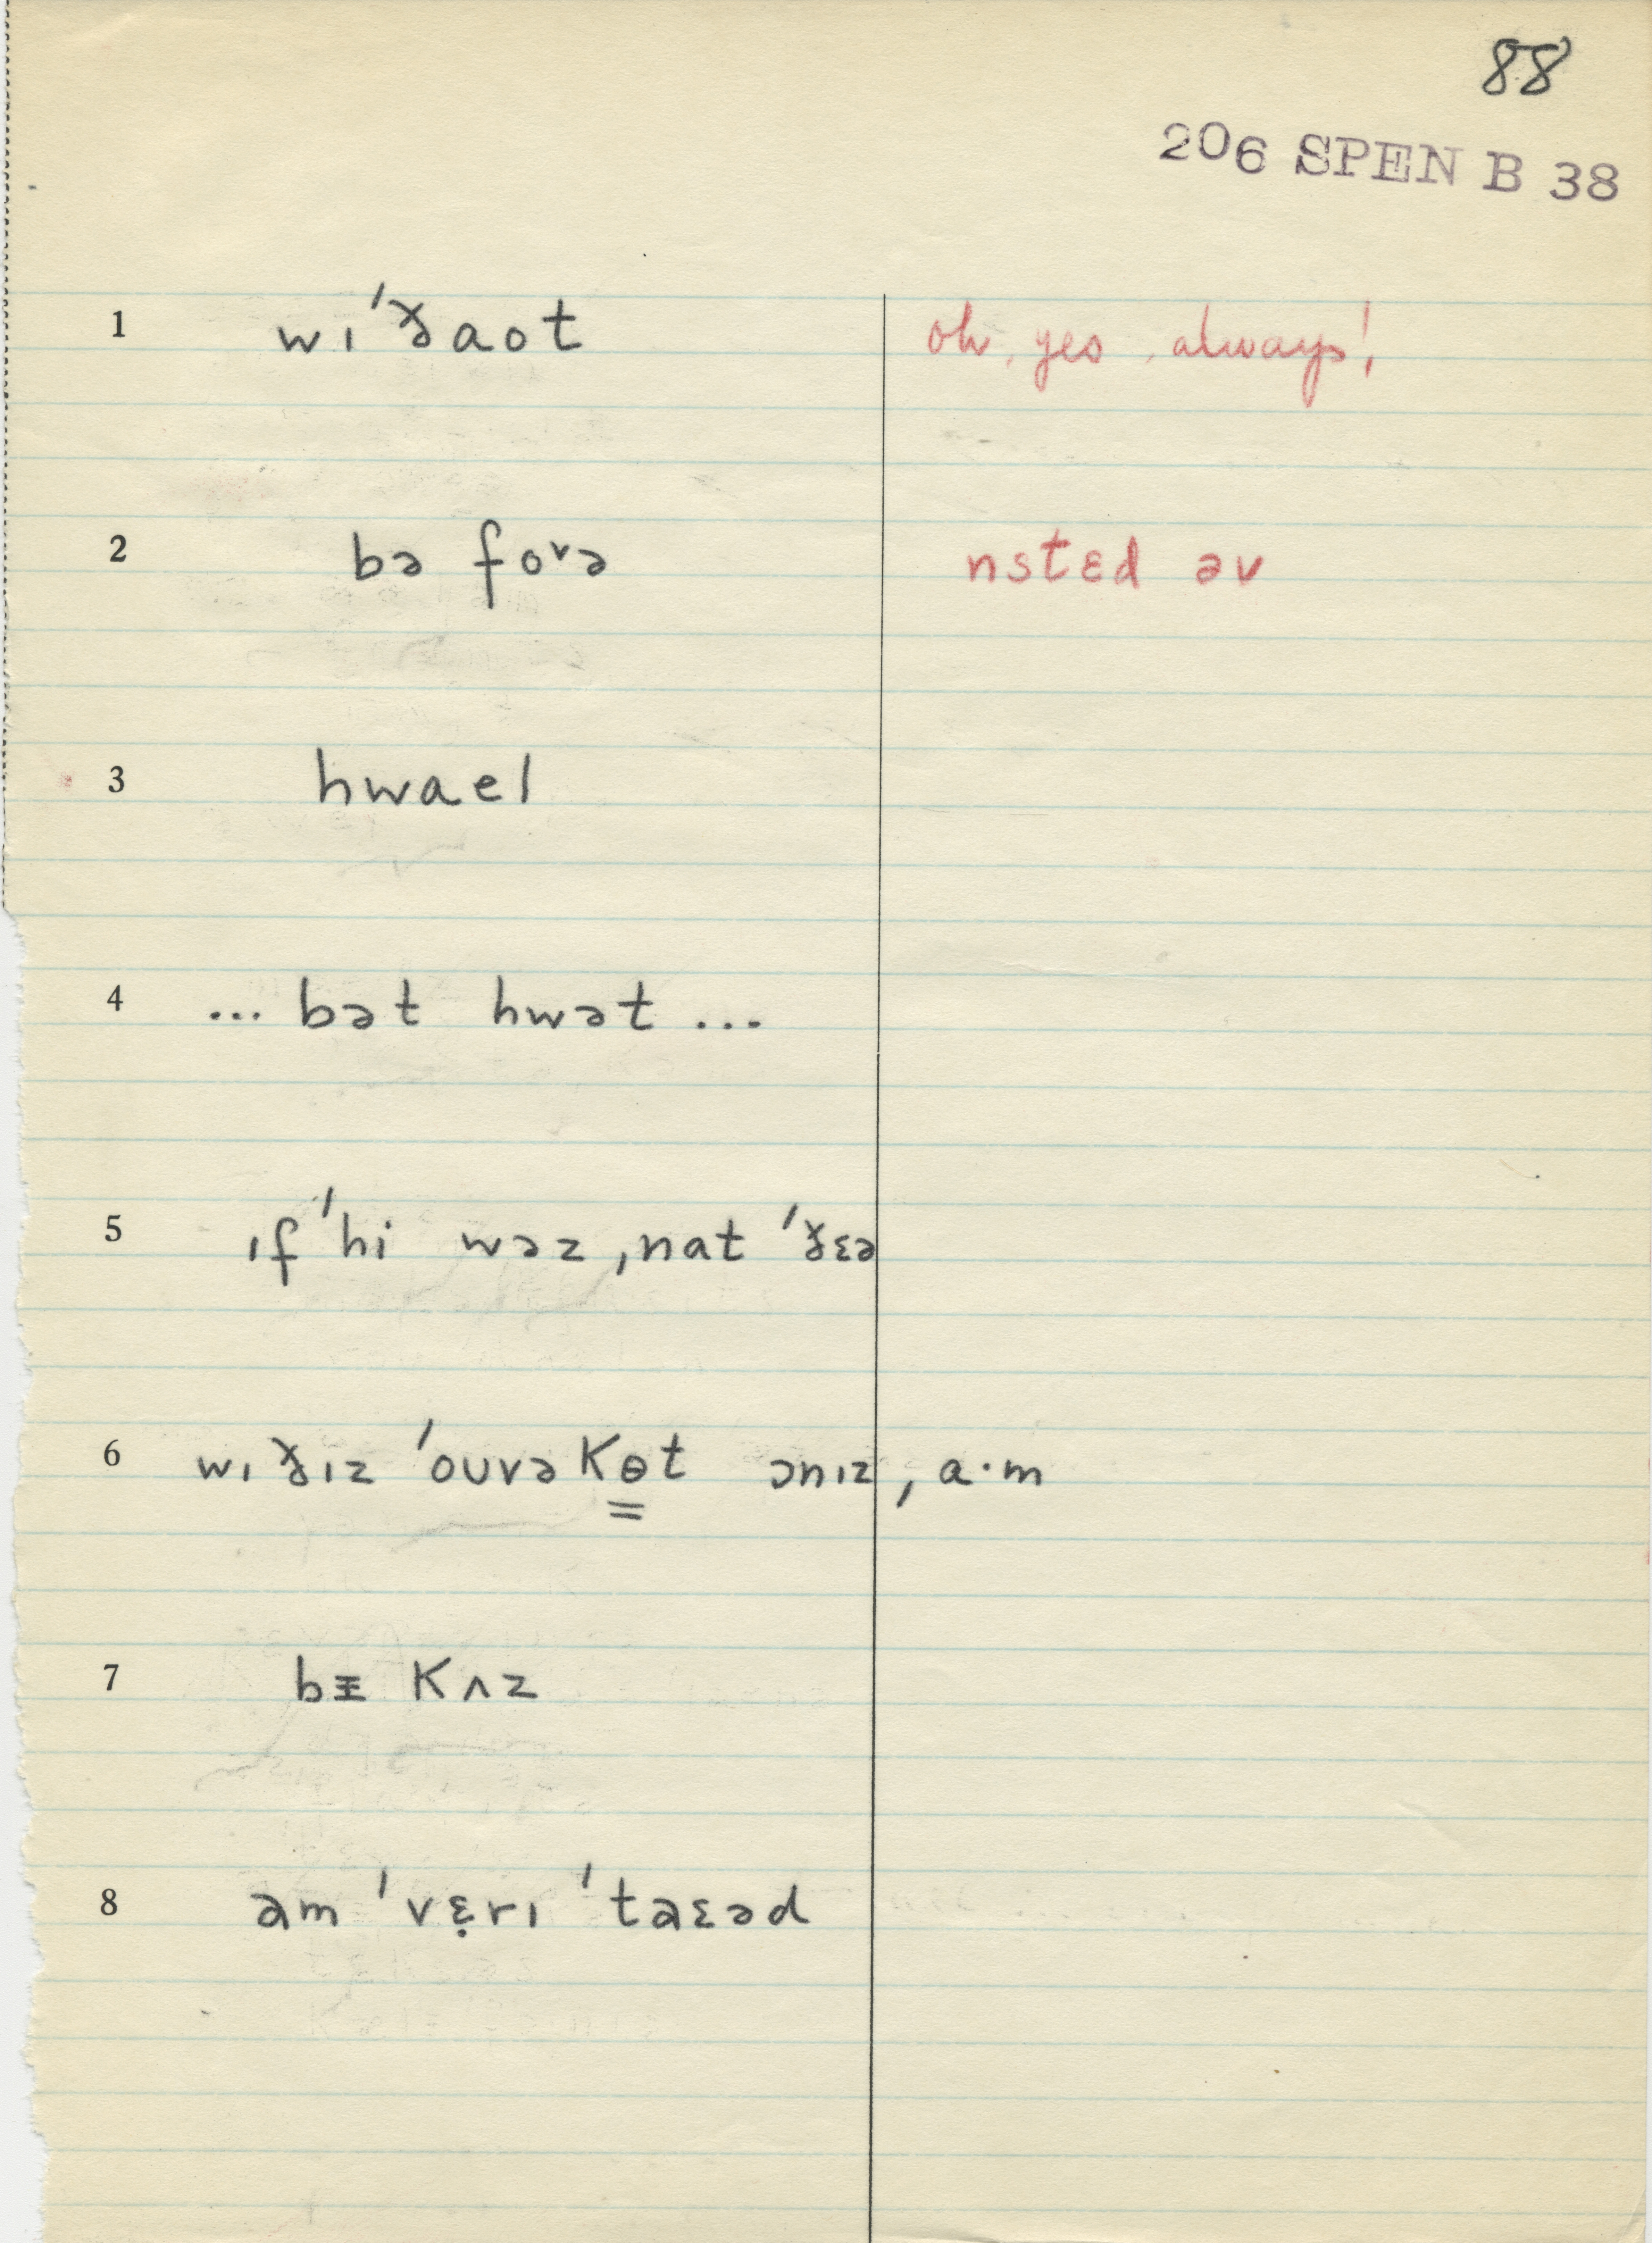 88
206 SPEN B 38
1 wɪ ˈðaot oh, yes, always!
2 bə foᵛə nstɛd əv
3 hwael
4 ... bət hwət ...
5 ɪf ˈhi wəz ˌnat ˈðɛə
6 wɪ ðɪz ˈouvəkɵ̳t ɔnɪz, a·m
7 bᵻ kʌz
8 əm ˈvɛ̣rɪ ˈtaɛəd